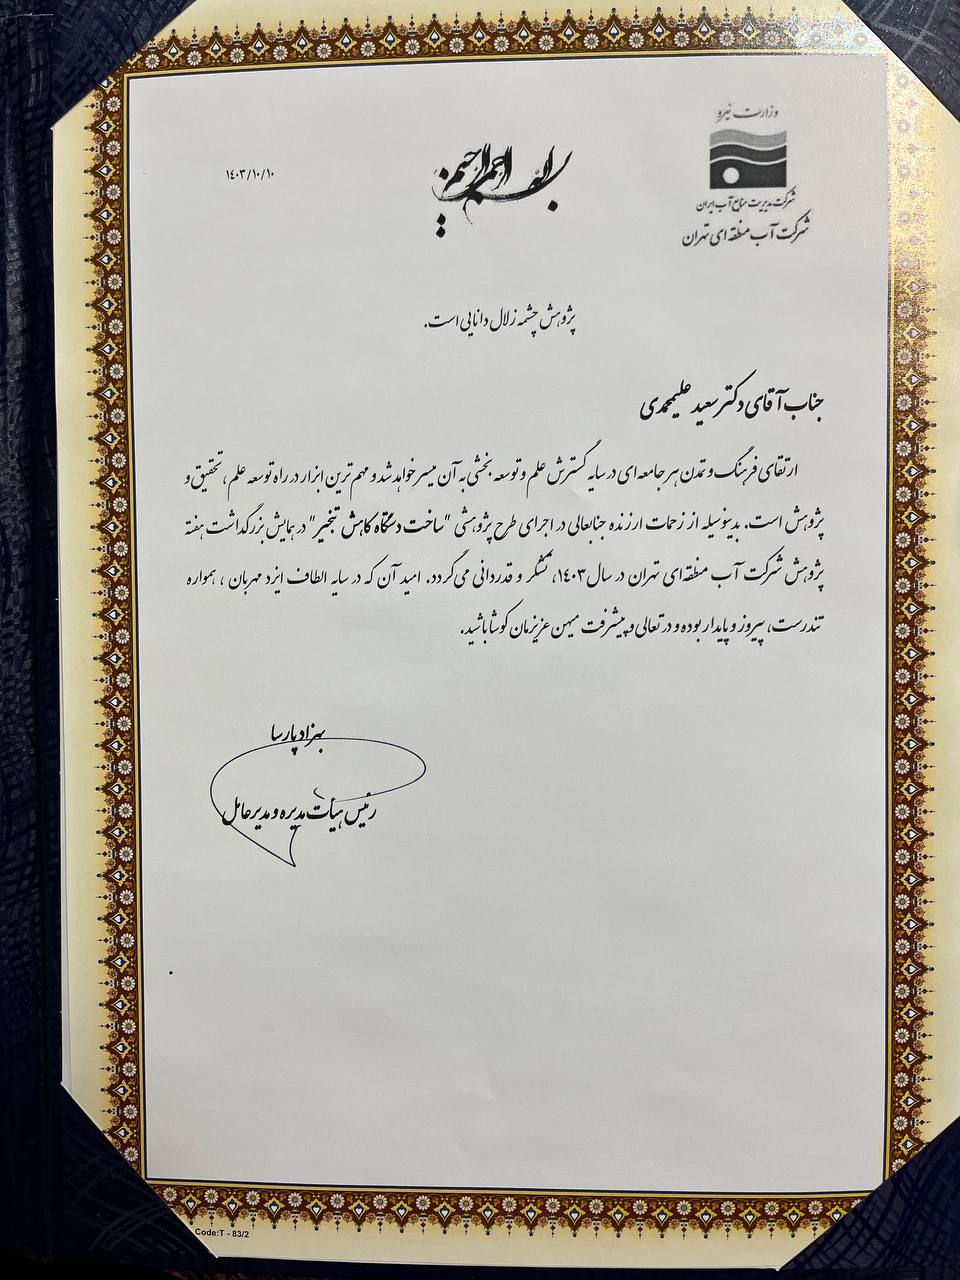 وزارت نیرو
شرکت مدیریت منابع آب ایران
شرکت آب منطقه ای تهران
بسم الله الرحمن الرحیم
۱۴۰۳/۱۰/۱۰
پژوهش چشمه زلال دانایی است.
جناب آقای دکتر سعید علیمحمدی
ارتقای فرهنگ و تمدن هر جامعه ای در سایه گسترش علم و توسعه بخشی به آن میسر خواهد شد و مهم ترین ابزار در راه توسعه علم، تحقیق و
پژوهش است. بدینوسیله از زحمات ارزنده جنابعالی در اجرای طرح پژوهشی "ساخت دستگاه کاهش تبخیر" در همایش بزرگداشت هفته
پژوهش شرکت آب منطقه‌ای تهران در سال ۱۴۰۳، تشکر و قدردانی می‌گردد. امید آن که در سایه الطاف ایزد مهربان ، همواره
تندرست، پیروز و پایدار بوده و در تعالی و پیشرفت میهن عزیزمان کوشا باشید.
بهزاد پارسا
رئیس هیأت مدیره و مدیرعامل
Code:T - 83/2